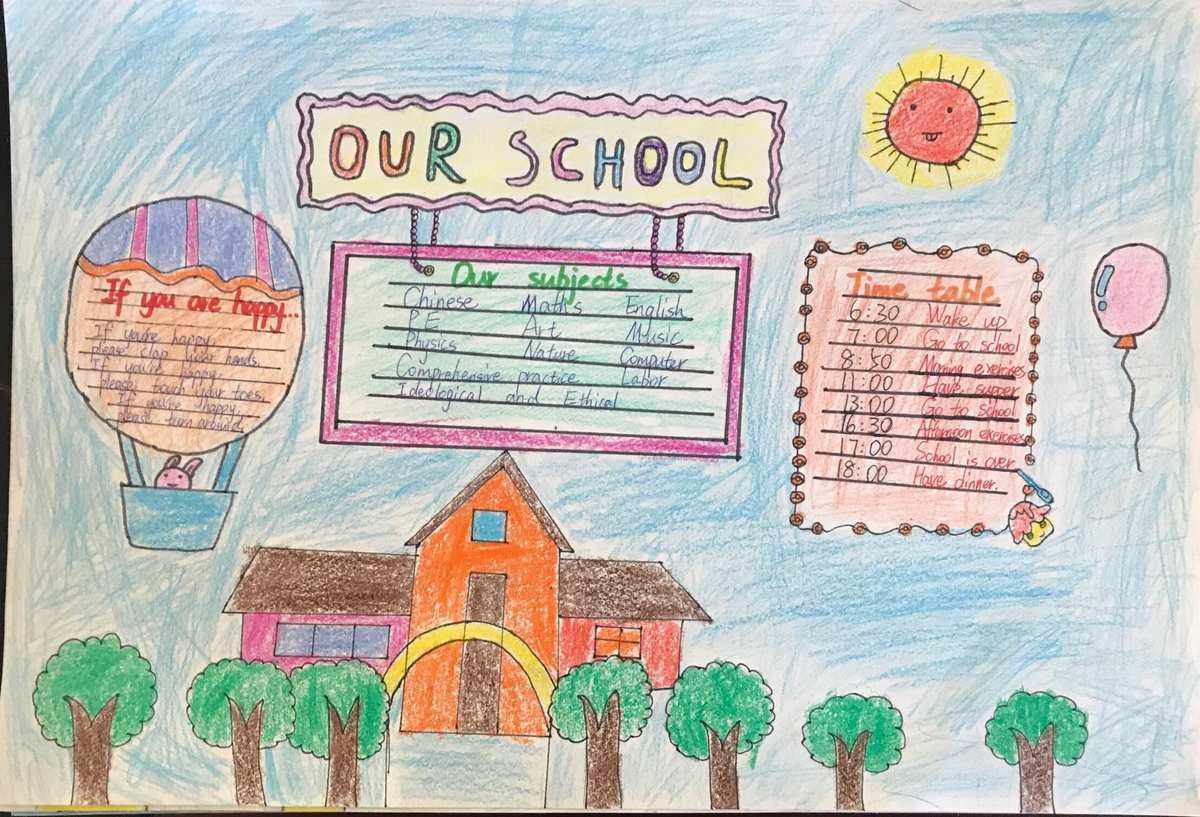 OUR SCHOOL
Our subjects
Chinese Maths English
P.E Art Music
Physics Nature Computer
Comprehensive practice Labor
Ideological and Ethical
If you are happy...
If you're happy
please clap your hands.
If you're happy
please touch your toes.
If you're happy,
please turn around.
Time table
6:30 Wake up
7:00 Go to school
8:50 Morning exercises
11:00 Have supper
13:00 Go to school
16:30 Afternoon exercises
17:00 School is over
18:00 Have dinner.